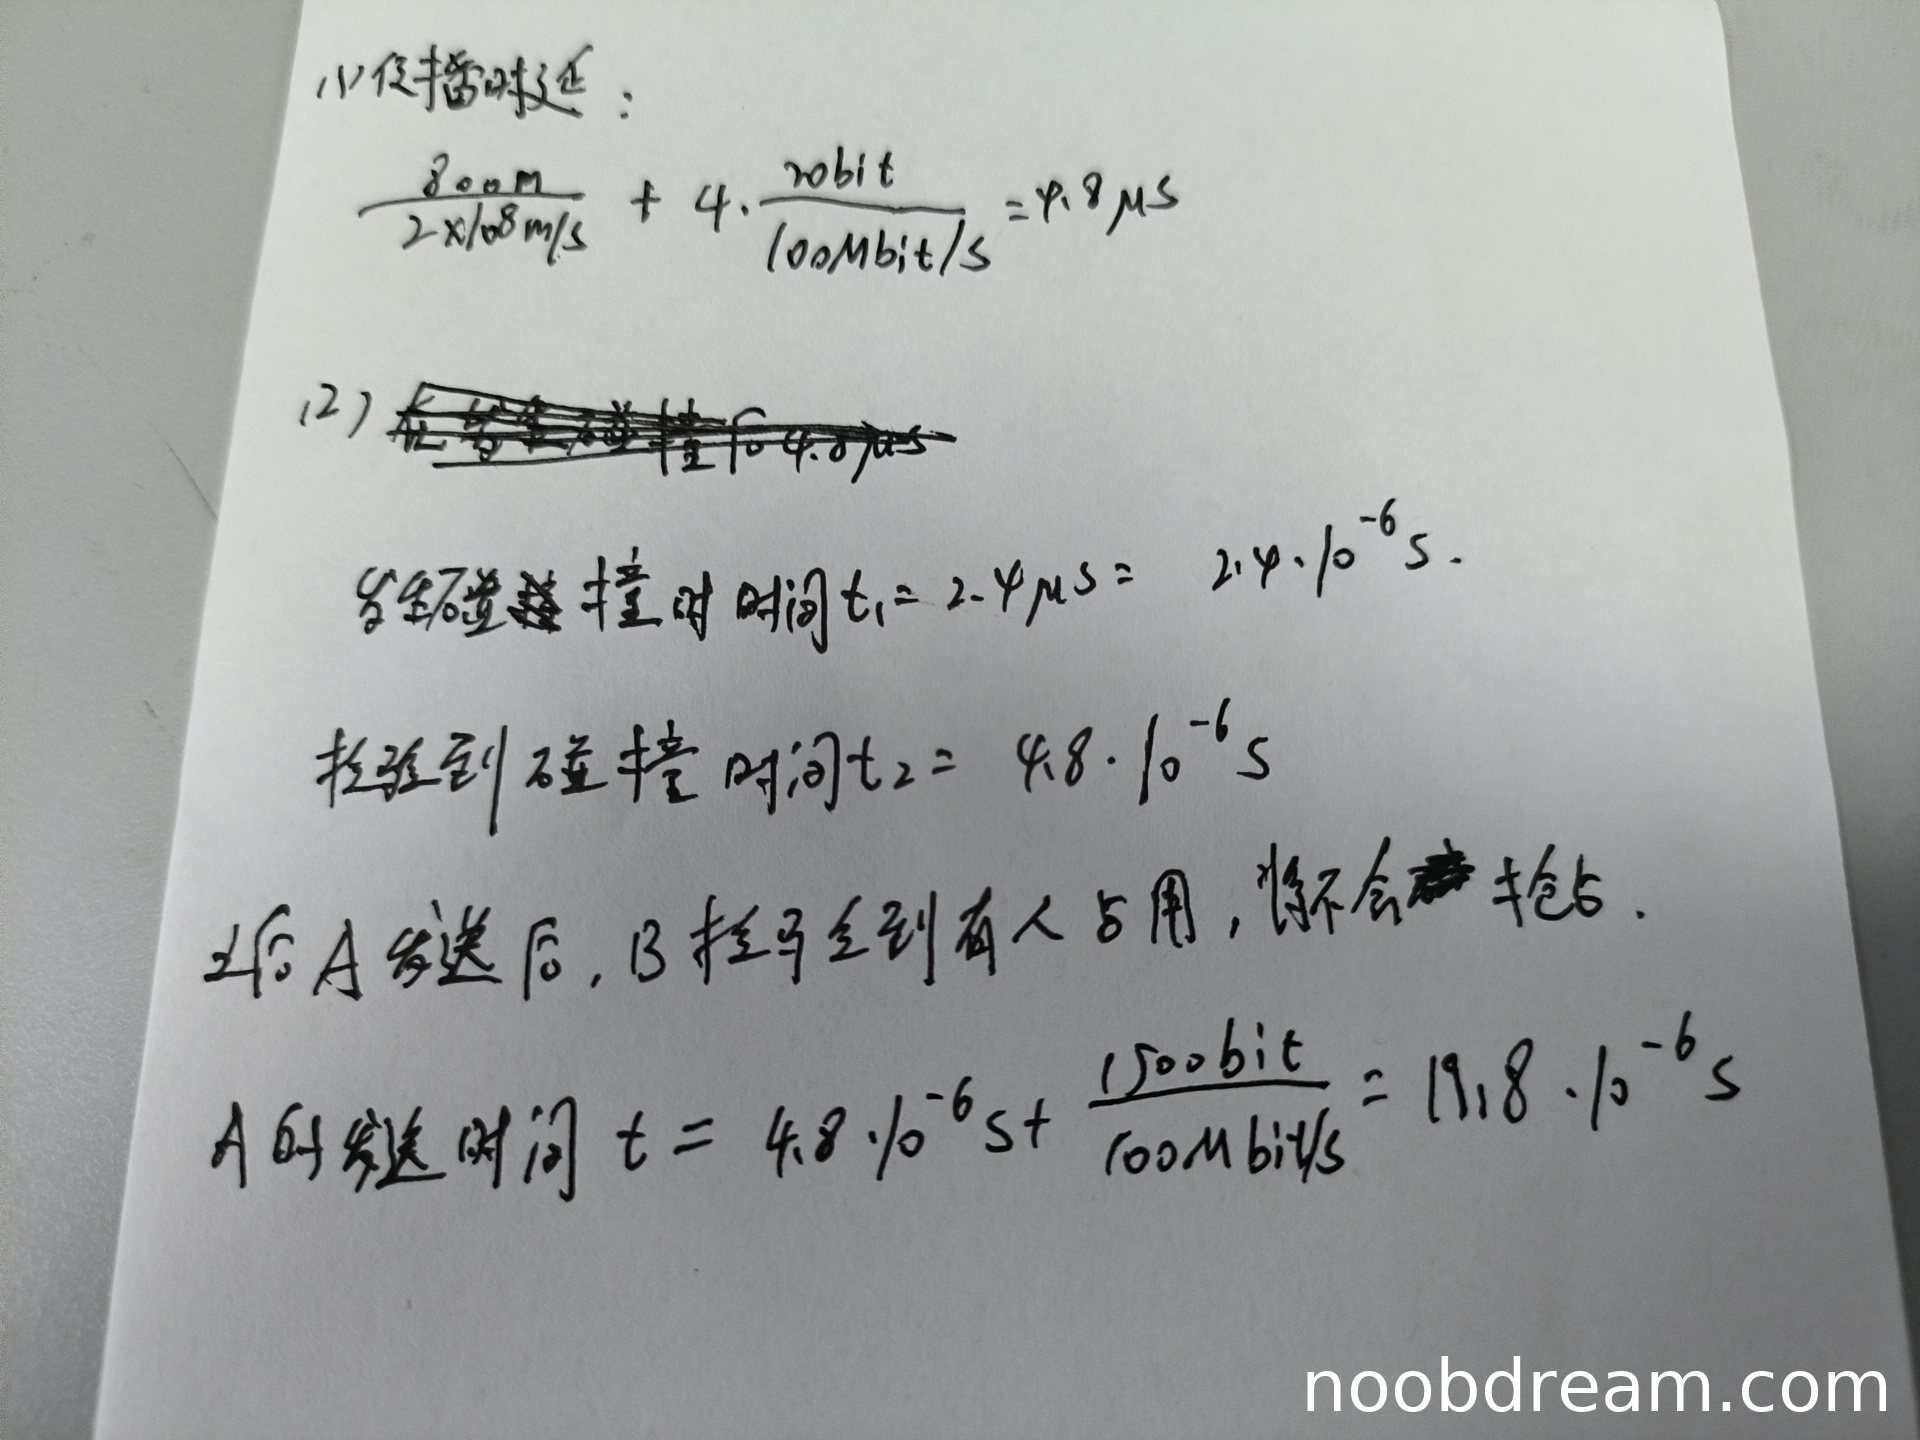 (1)传播时延：
800m/2×10^8m/s + 4·20bit/100Mbit/s = 4.8μs
(2)
发生碰撞时 时间t₁ = 2.4μs = 2.4·10^-6 s.
检验到碰撞时间t₂ = 4.8·10^-6 s
之后A发送后, B检到有人占用, 将不会抢占.
A的发送时间 t = 4.8·10^-6 s + 1500bit/100Mbit/s = 19.8·10^-6 s
noobdream.com